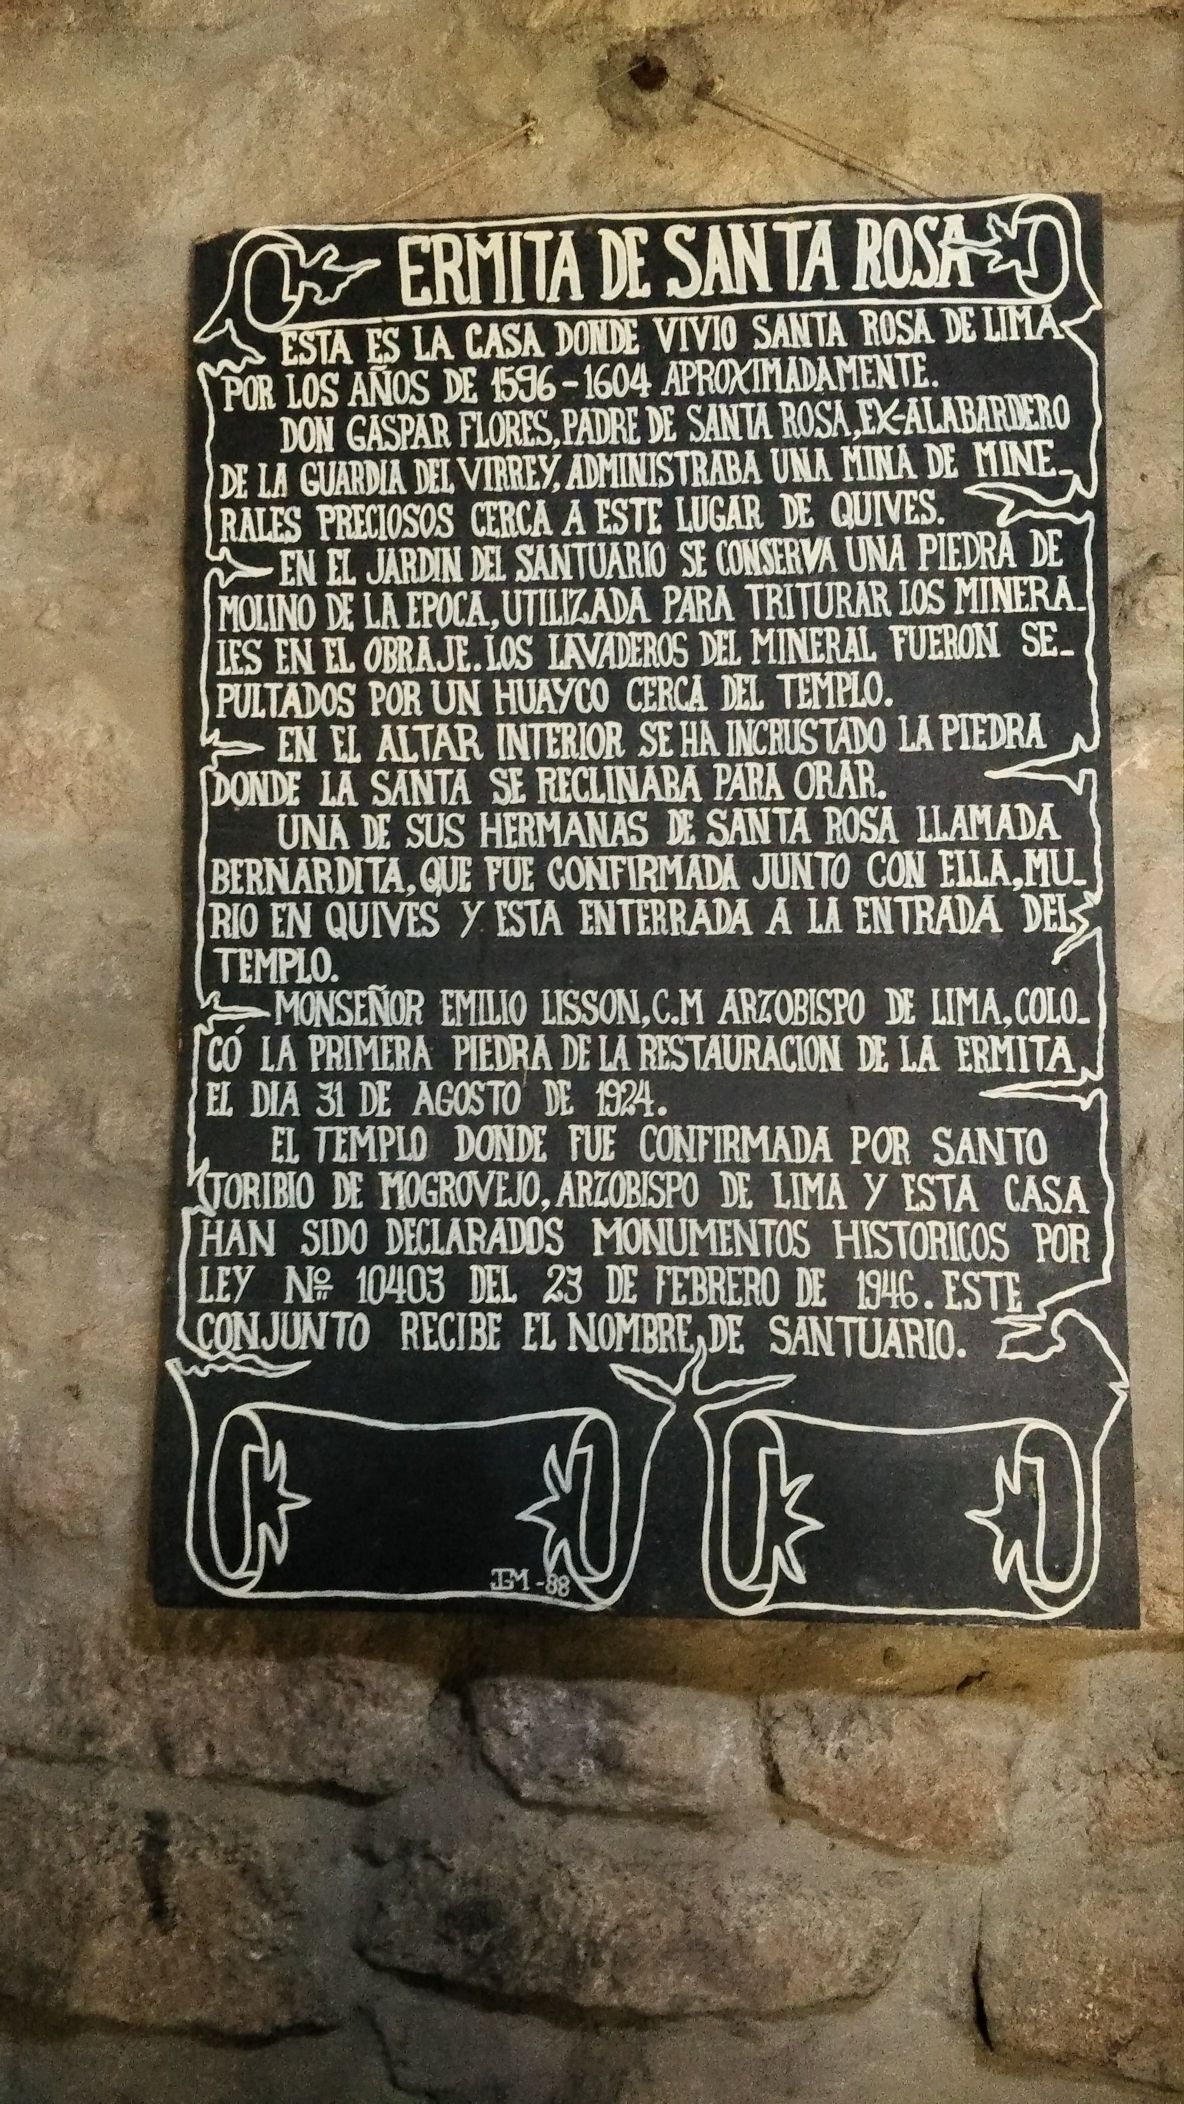 ERMITA DE SANTA ROSA
ESTA ES LA CASA DONDE VIVIO SANTA ROSA DE LIMA
POR LOS AÑOS DE 1596-1604 APROXIMADAMENTE.
DON GASPAR FLORES, PADRE DE SANTA ROSA, EX-ALABARDERO
DE LA GUARDIA DEL VIRREY, ADMINISTRABA UNA MINA DE MINE_
RALES PRECIOSOS CERCA A ESTE LUGAR DE QUIVES.
EN EL JARDIN DEL SANTUARIO SE CONSERVA UNA PIEDRA DE
MOLINO DE LA EPOCA, UTILIZADA PARA TRITURAR LOS MINERA_
LES EN EL OBRAJE. LOS LAVADEROS DEL MINERAL FUERON SE_
PULTADOS POR UN HUAYCO CERCA DEL TEMPLO.
EN EL ALTAR INTERIOR SE HA INCRUSTADO LA PIEDRA
DONDE LA SANTA SE RECLINABA PARA ORAR.
UNA DE SUS HERMANAS DE SANTA ROSA LLAMADA
BERNARDITA, QUE FUE CONFIRMADA JUNTO CON ELLA, MU_
RIO EN QUIVES Y ESTA ENTERRADA A LA ENTRADA DEL
TEMPLO.
MONSEÑOR EMILIO LISSON, C.M ARZOBISPO DE LIMA, COLO_
CÓ LA PRIMERA PIEDRA DE LA RESTAURACION DE LA ERMITA
EL DIA 31 DE AGOSTO DE 1924.
EL TEMPLO DONDE FUE CONFIRMADA POR SANTO
TORIBIO DE MOGROVEJO, ARZOBISPO DE LIMA Y ESTA CASA
HAN SIDO DECLARADOS MONUMENTOS HISTORICOS POR
LEY Nº 10403 DEL 23 DE FEBRERO DE 1946. ESTE
CONJUNTO RECIBE EL NOMBRE DE SANTUARIO.
JGM-88